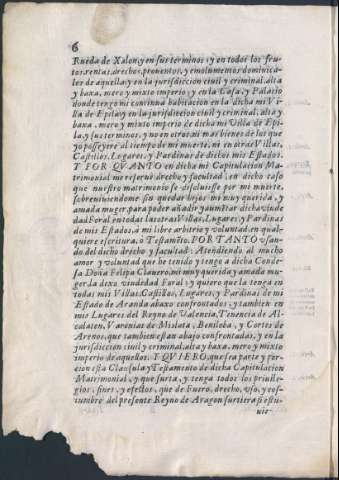 6
Rueda de Xalon, y en sus terminos, y en todos los fru-
tos, rentas, drechos, prouentos, y emolumentos dominica-
les de aquella, y en la jurisdiccion ciuil y criminal, alta
y baxa, mero y mixto imperio, y en la Casa, y Palacio
donde tengo mi continua habitacion en la dicha mi Vi-
lla de Epila, y en la jurisdiccion ciuil y criminal, alta y
baxa, mero y mixto imperio de dicha mi Villa de Epi-
la, y sus terminos, y no en otros mis bienes de los que
yo posseyere al tiempo de mi muerte, ni en otras Villas,
Castillos, Lugares, y Pardinas de dichos mis Estados.
Y POR QVANTO en dicha mi Capitulacion Ma-
trimonial me reserue drecho y facultad, en dicho caso
que nuestro matrimonio se dissoluiesse por mi muerte,
sobreuiuiendome sin quedar hijos mi muy querida, y
amada muger, para poder añadir y aumẽtar dicha viude
dad Foral en todas las otras Villas, Lugares, y Pardinas
de mis Estados, à mi libre arbitrio y voluntad, en qual-
quiere escritura, ò Testamẽto. POR TANTO vsan-
do del dicho drecho y facultad: Atendiendo al mucho
amor y voluntad que he tenido y tengo à dicha Conde-
sa Doña Felipa Clauero, mi muy querida y amada mu-
ger, la dexo viudedad Foral; y quiero que la tenga en
todas mis Villas, Castillos, Lugares, y Pardinas de mi
Estado de Aranda abaxo confrontados; y tambien en
mis Lugares del Reyno de Valencia, Tenencia de Al-
calaten, Varonias de Mislata, Beniloba, y Cortes de
Arenos, que tambien estan abajo confrontadas, y en la
jurisdiccion ciuil y criminal, alta y baxa, mero y mixto
imperio de aquellos. Y QVIERO, que sea parte y por-
cion esta Clausula y Testamento de dicha Capitulacion
Matrimonial, y que surta, y tenga todos los priuile-
gios, fines, y efectos, que de Fuero, drecho, vso, y cos-
tumbre del presente Reyno de Aragon surtiera si estu-
uie-